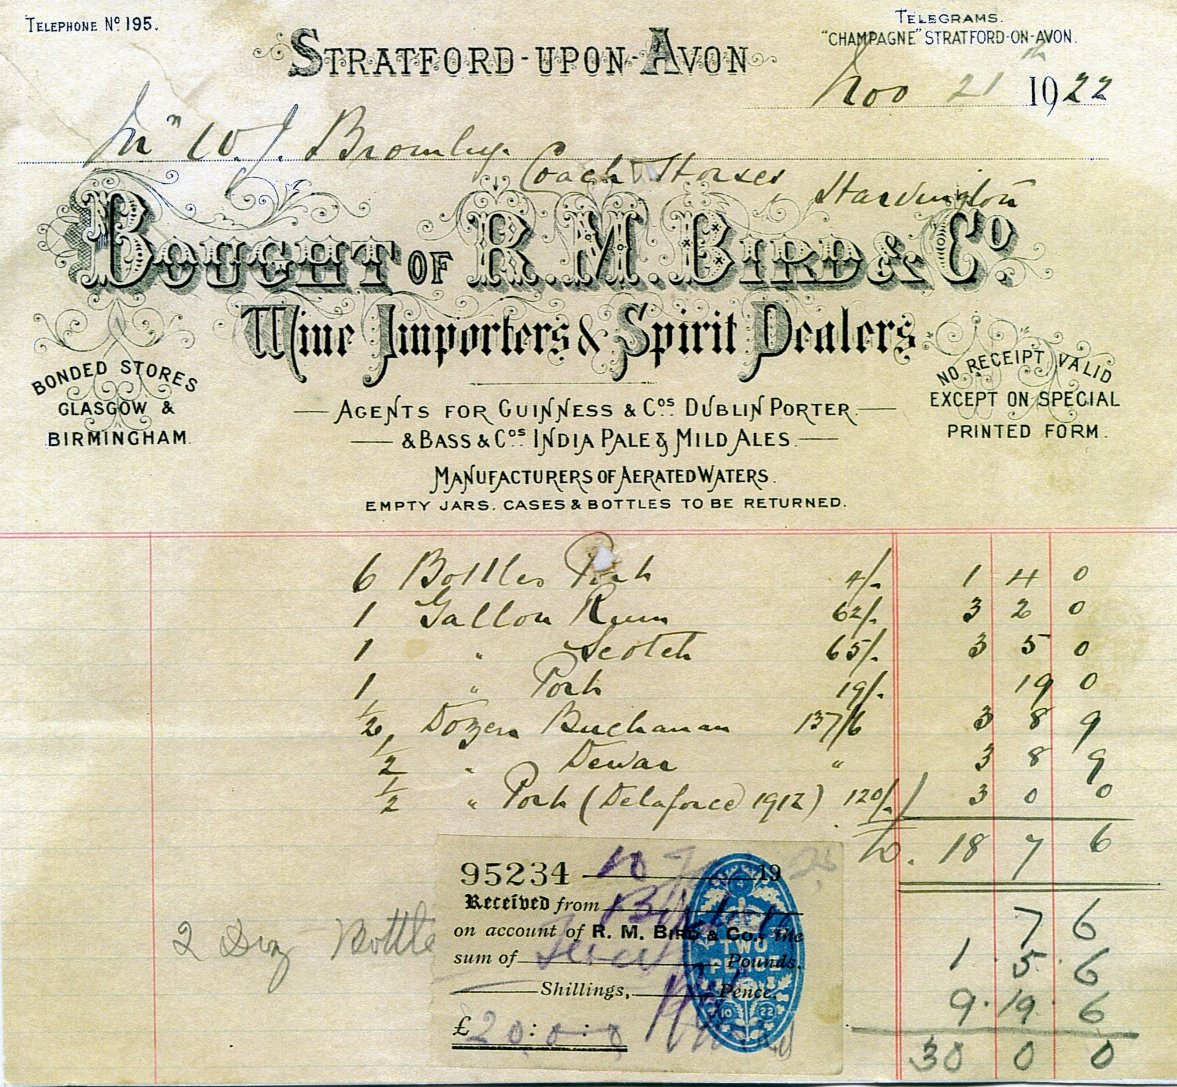 TELEPHONE Nº 195.
TELEGRAMS.
"CHAMPAGNE" STRATFORD-ON-AVON.
STRATFORD-UPON-AVON
Nov 21th 1922
Mr W. J. Bromley
Coach & Horses Harvington
BOUGHT OF R. M. BIRD & Cº
Wine Importers & Spirit Dealers
BONDED STORES
GLASGOW &
BIRMINGHAM
NO RECEIPT VALID
EXCEPT ON SPECIAL
PRINTED FORM.
AGENTS FOR GUINNESS & Cºs DUBLIN PORTER.
& BASS & Cºs INDIA PALE & MILD ALES.
MANUFACTURERS OF AERATED WATERS.
EMPTY JARS, CASES & BOTTLES TO BE RETURNED.
6 Bottles Port 4/- 1 4 0
1 Gallon Rum 62/- 3 2 0
1 " Scotch 65/- 3 5 0
1 " Port 19/- 19 0
1/2 Dozen Buchanan 137/6 3 8 9
1/2 " Dewar " 3 8 9
1/2 " Port (Delaforce 1912) 120/- 3 0 0
18 7 6
7 6
2 Doz Bottle 1 . 5 . 6
9 . 19 . 6
30 0 0
95234 10 19
Received from
on account of R. M. BIRD & Co., the
sum of Pounds,
Shillings, Pence.
£20 : 0 : 0
TWO
PENCE
10 22